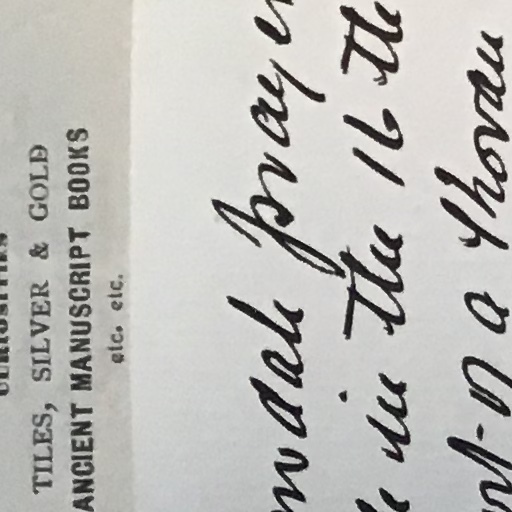 CURIOSITIES
TILES, SILVER & GOLD
ANCIENT MANUSCRIPT BOOKS
etc. etc.
prayer
in the 16 the
of a